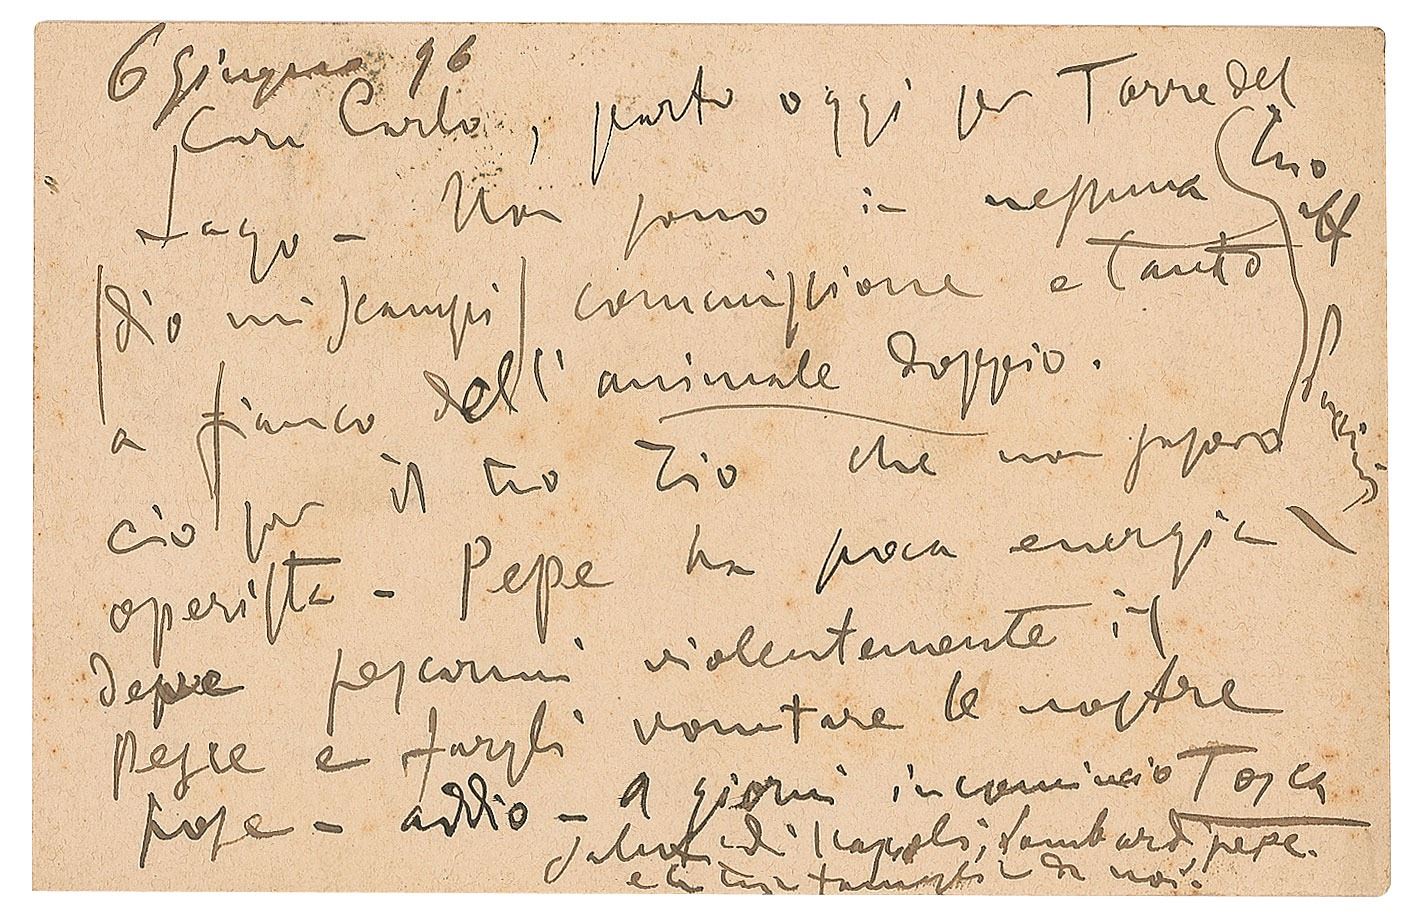 6 Giugno 96
Caro Carlo, parto oggi per Torre del
Lago – Non sono in nessuna
(dio mi scampi) commissione e tanto
a fianco dell'animale doppio.
ciò per il tuo zio che non
operista – Pepe ha poca energia
deve pescarmi violentemente il
pesce e fargli vomitare le nostre
pose – addio – a giorni incomincio Tosca
saluti di Lombardi, pepe.
e la tua famiglia da noi.
Tuo
aff
Puccini